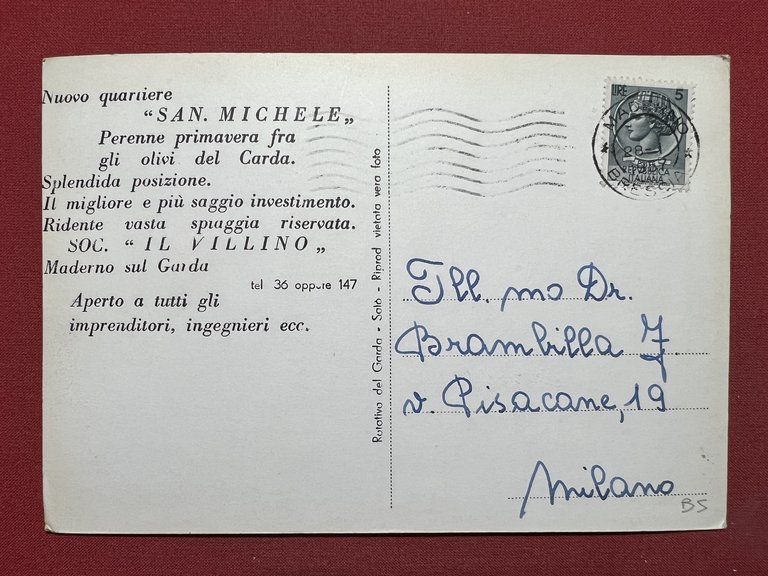 Nuovo quartiere
"SAN. MICHELE„
Perenne primavera fra
gli olivi del Garda.
Splendida posizione.
Il migliore e più saggio investimento.
Ridente vasta spiaggia riservata.
SOC. "IL VILLINO„
Maderno sul Garda
tel 36 oppure 147
Aperto a tutti gli
imprenditori, ingegnieri ecc.
Rotativa del Garda - Salò - Riprod vietata vera foto
LIRE 5
MADERNO
28-1
BRESCIA
ITALIANA
Ill. mo Dr.
Brambilla J.
v. Pisacane, 19
Milano
BS